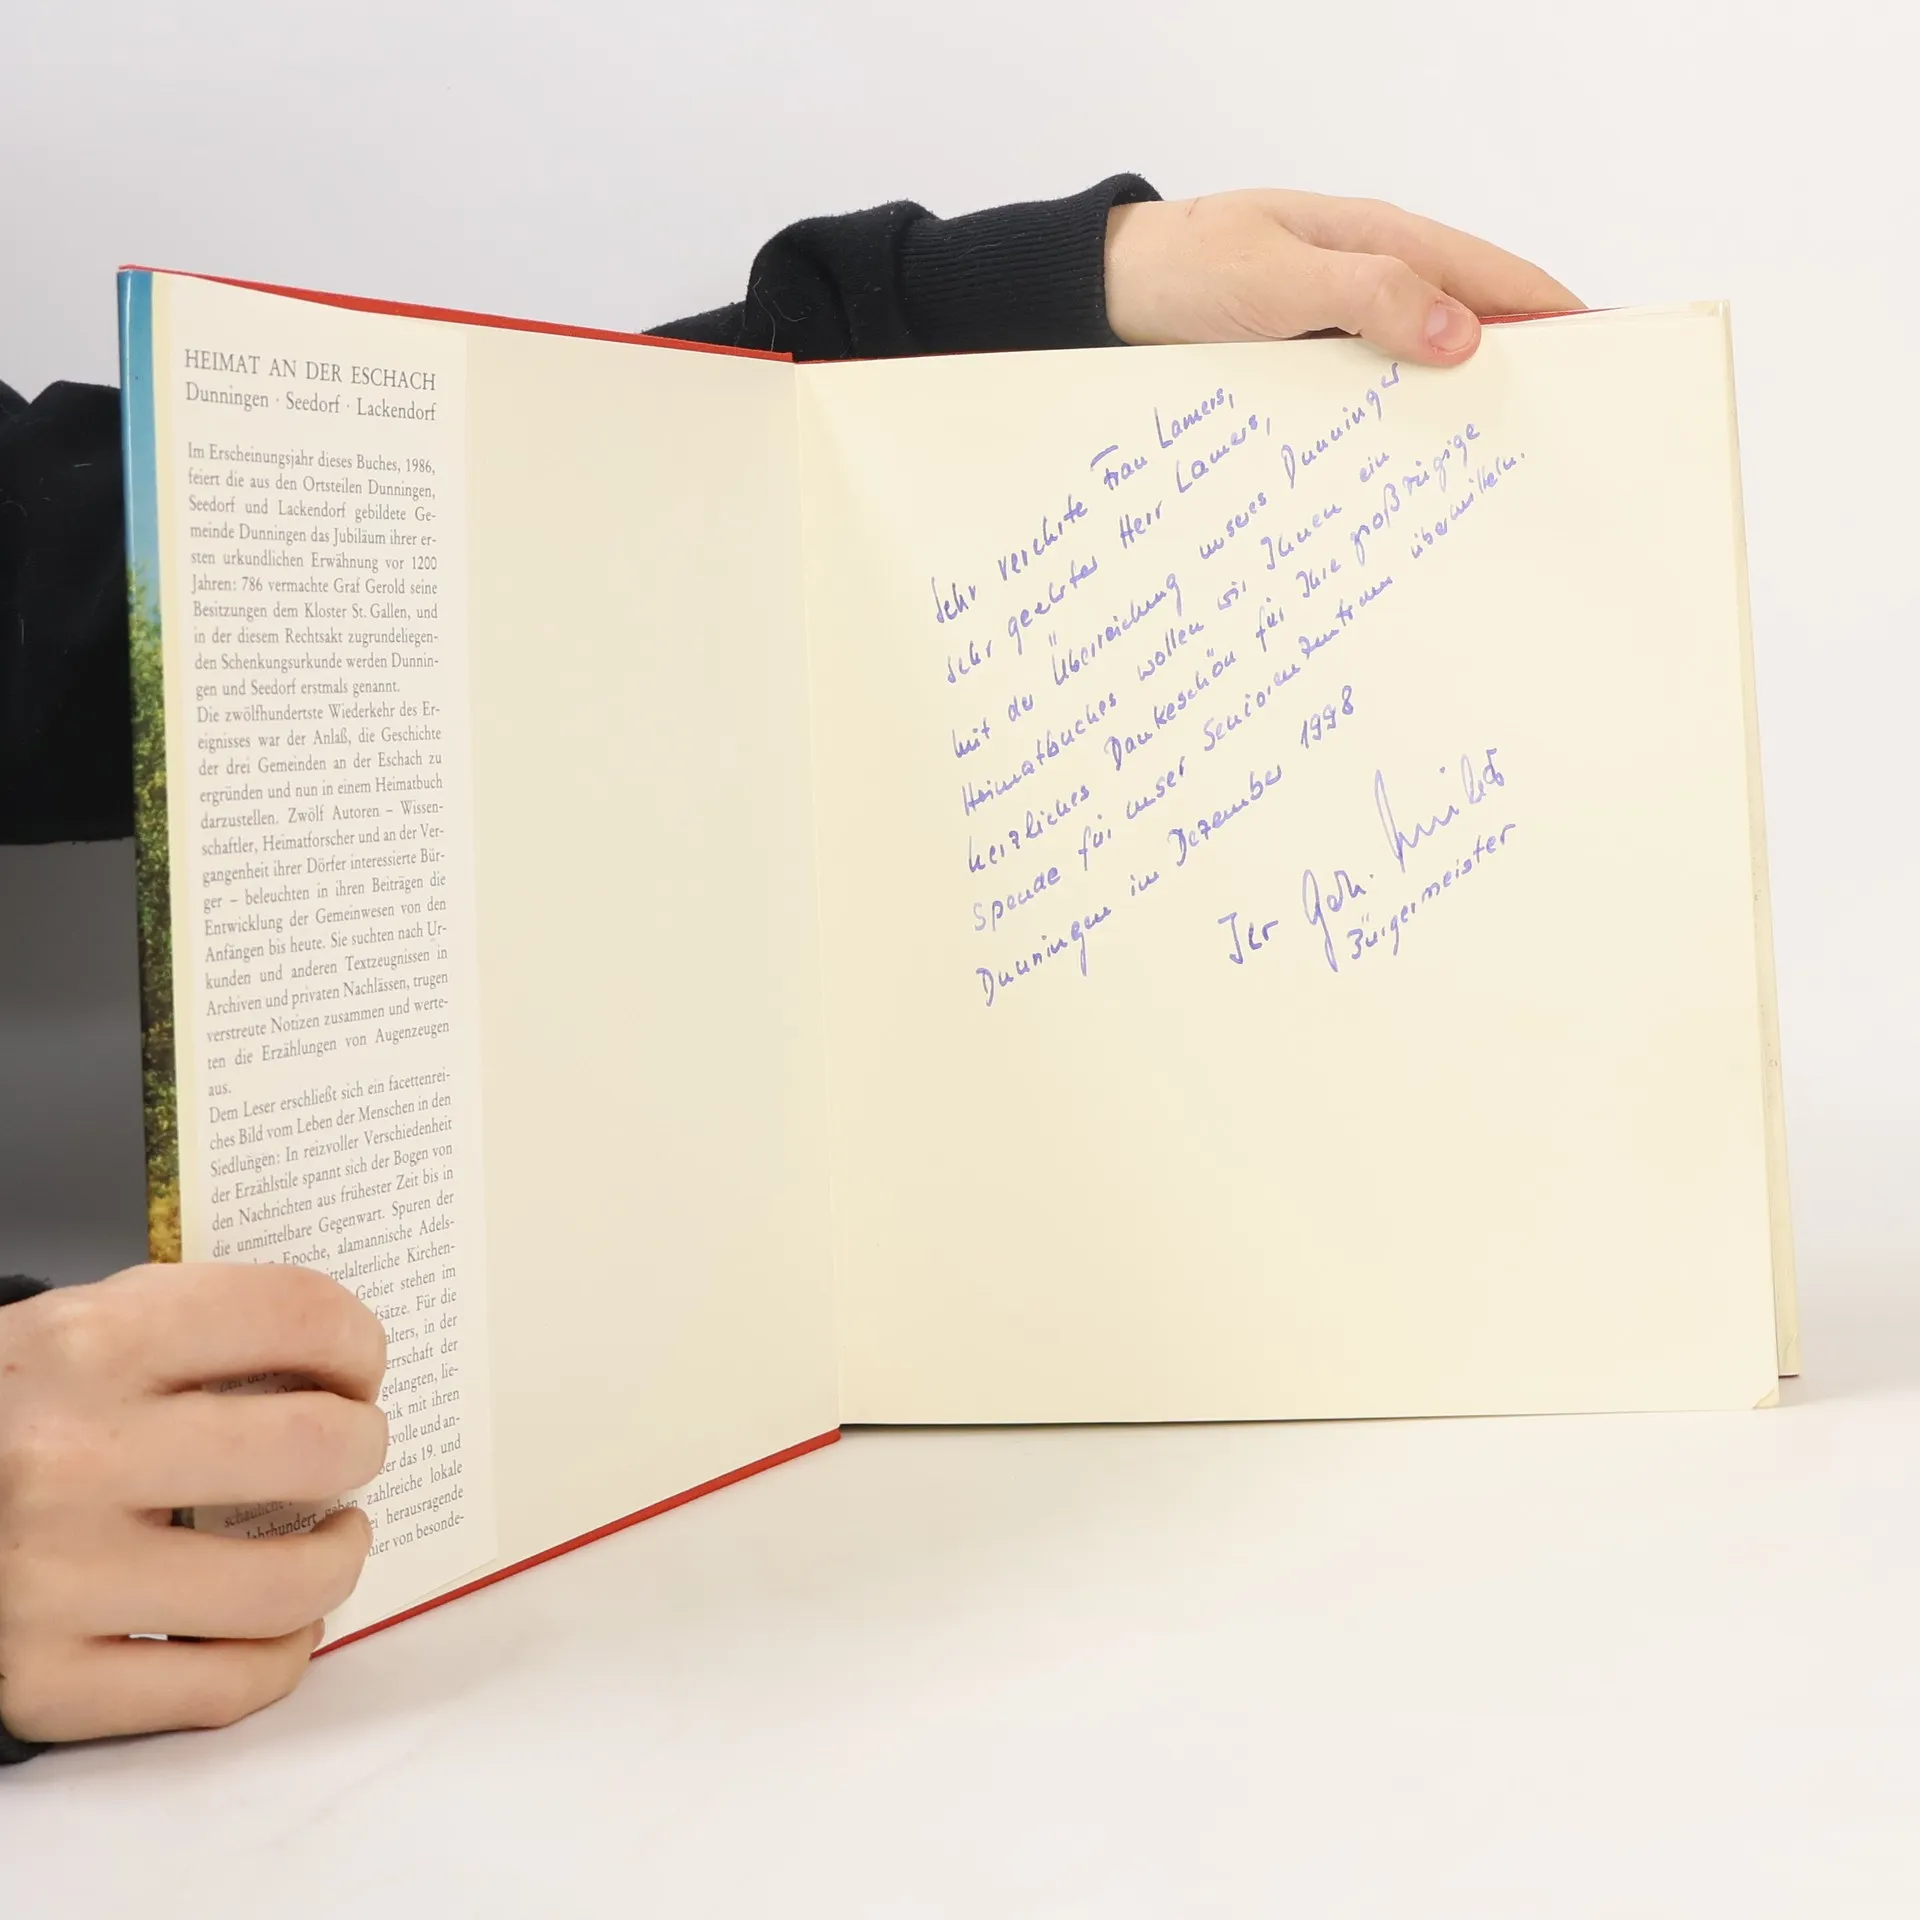 HEIMAT AN DER ESCHACH
Dunningen · Seedorf · Lackendorf
Im Erscheinungsjahr dieses Buches, 1986,
feiert die aus den Ortsteilen Dunningen,
Seedorf und Lackendorf gebildete Ge-
meinde Dunningen das Jubiläum ihrer er-
sten urkundlichen Erwähnung vor 1200
Jahren: 786 vermachte Graf Gerold seine
Besitzungen dem Kloster St. Gallen, und
in der diesem Rechtsakt zugrundeliegen-
den Schenkungsurkunde werden Dunnin-
gen und Seedorf erstmals genannt.
Die zwölfhundertste Wiederkehr des Er-
eignisses war der Anlaß, die Geschichte
der drei Gemeinden an der Eschach zu
ergründen und nun in einem Heimatbuch
darzustellen. Zwölf Autoren – Wissen-
schaftler, Heimatforscher und an der Ver-
gangenheit ihrer Dörfer interessierte Bür-
ger – beleuchten in ihren Beiträgen die
Entwicklung der Gemeinwesen von den
Anfängen bis heute. Sie suchten nach Ur-
kunden und anderen Textzeugnissen in
Archiven und privaten Nachlässen, trugen
verstreute Notizen zusammen und werte-
ten die Erzählungen von Augenzeugen
aus.
Dem Leser erschließt sich ein facettenrei-
ches Bild vom Leben der Menschen in den
Siedlungen: In reizvoller Verschiedenheit
der Erzählstile spannt sich der Bogen von
den Nachrichten aus frühester Zeit bis in
die unmittelbare Gegenwart. Spuren der
Epoche, alamannische Adels-
ittelalterliche Kirchen-
Gebiet stehen im
fsätze. Für die
alters, in der
errschaft der
gelangten, lie-
nik mit ihren
tvolle und an-
ber das 19. und
schauliche
Jahrhundert geben zahlreiche lokale
ei herausragende
hier von besonde-
Sehr verehrte Frau Lamers,
sehr geehrter Herr Lamers,
mit der Überreichung unseres Dunninger
Heimatbuches wollen wir Ihnen ein
herzliches Dankeschön für Ihre großzügige
Spende für unser Seniorenzentrum übermitteln.
Dunningen im Dezember 1998
Ihr
Bürgermeister